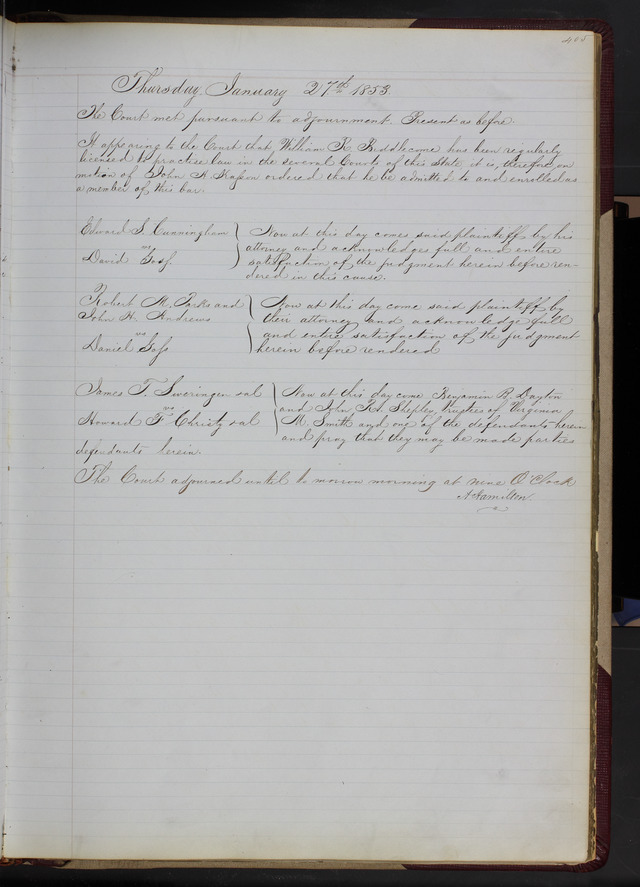 405
Thursday, January 27th 1853.
The Court met pursuant to adjournment. Present as before.
It appearing to the Court that William R. Biddlecome has been regularly
licensed to practise law in the several Courts of this State it is, therefore, on
motion of John A. Kasson ordered that he be admitted to and enrolled as
a member of this bar.
Edward S. Cunningham
vs
David Goss.
Now at this day comes said plaintiff by his
attorney and acknowledges full and entire
satisfaction of the judgment herein before ren-
dered in this cause.
Robert M. Parks and
John H. Andrews
vs
Daniel Goss
Now at this day come said plaintiff by
their attorney and acknowledge full
and entire satisfaction of the judgment
herein before rendered
James T. Swearingen et al
vs
Howard F. Christy et al
Now at this day come Benjamin B. Dayton
and John R. Shepley, trustees of Virginia
M. Smith and one of the defendants herein
and pray that they may be made parties
defendants herein.
The Court adjourned until to morrow morning at nine O'Clock
A. Hamilton.